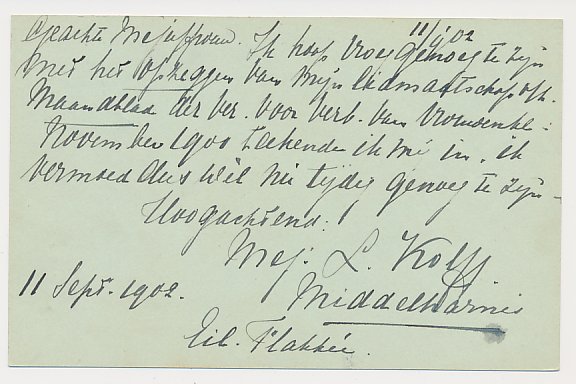 11/9 02
Geachte Mejuffrouw. Ik hoop vroeg genoeg te zijn
met het opzeggen van mijn lidmaatschap v/h.
Maandblad der Ver. voor Verb. van Vrouwenkl:
November 1900 teekende ik mij in. ik
vermoed dus wel nu tijdig genoeg te zijn
Hoogachtend.
Mej. L. Kolff
11 Sept. 1902. Middelharnis
Eil. Flakkée.